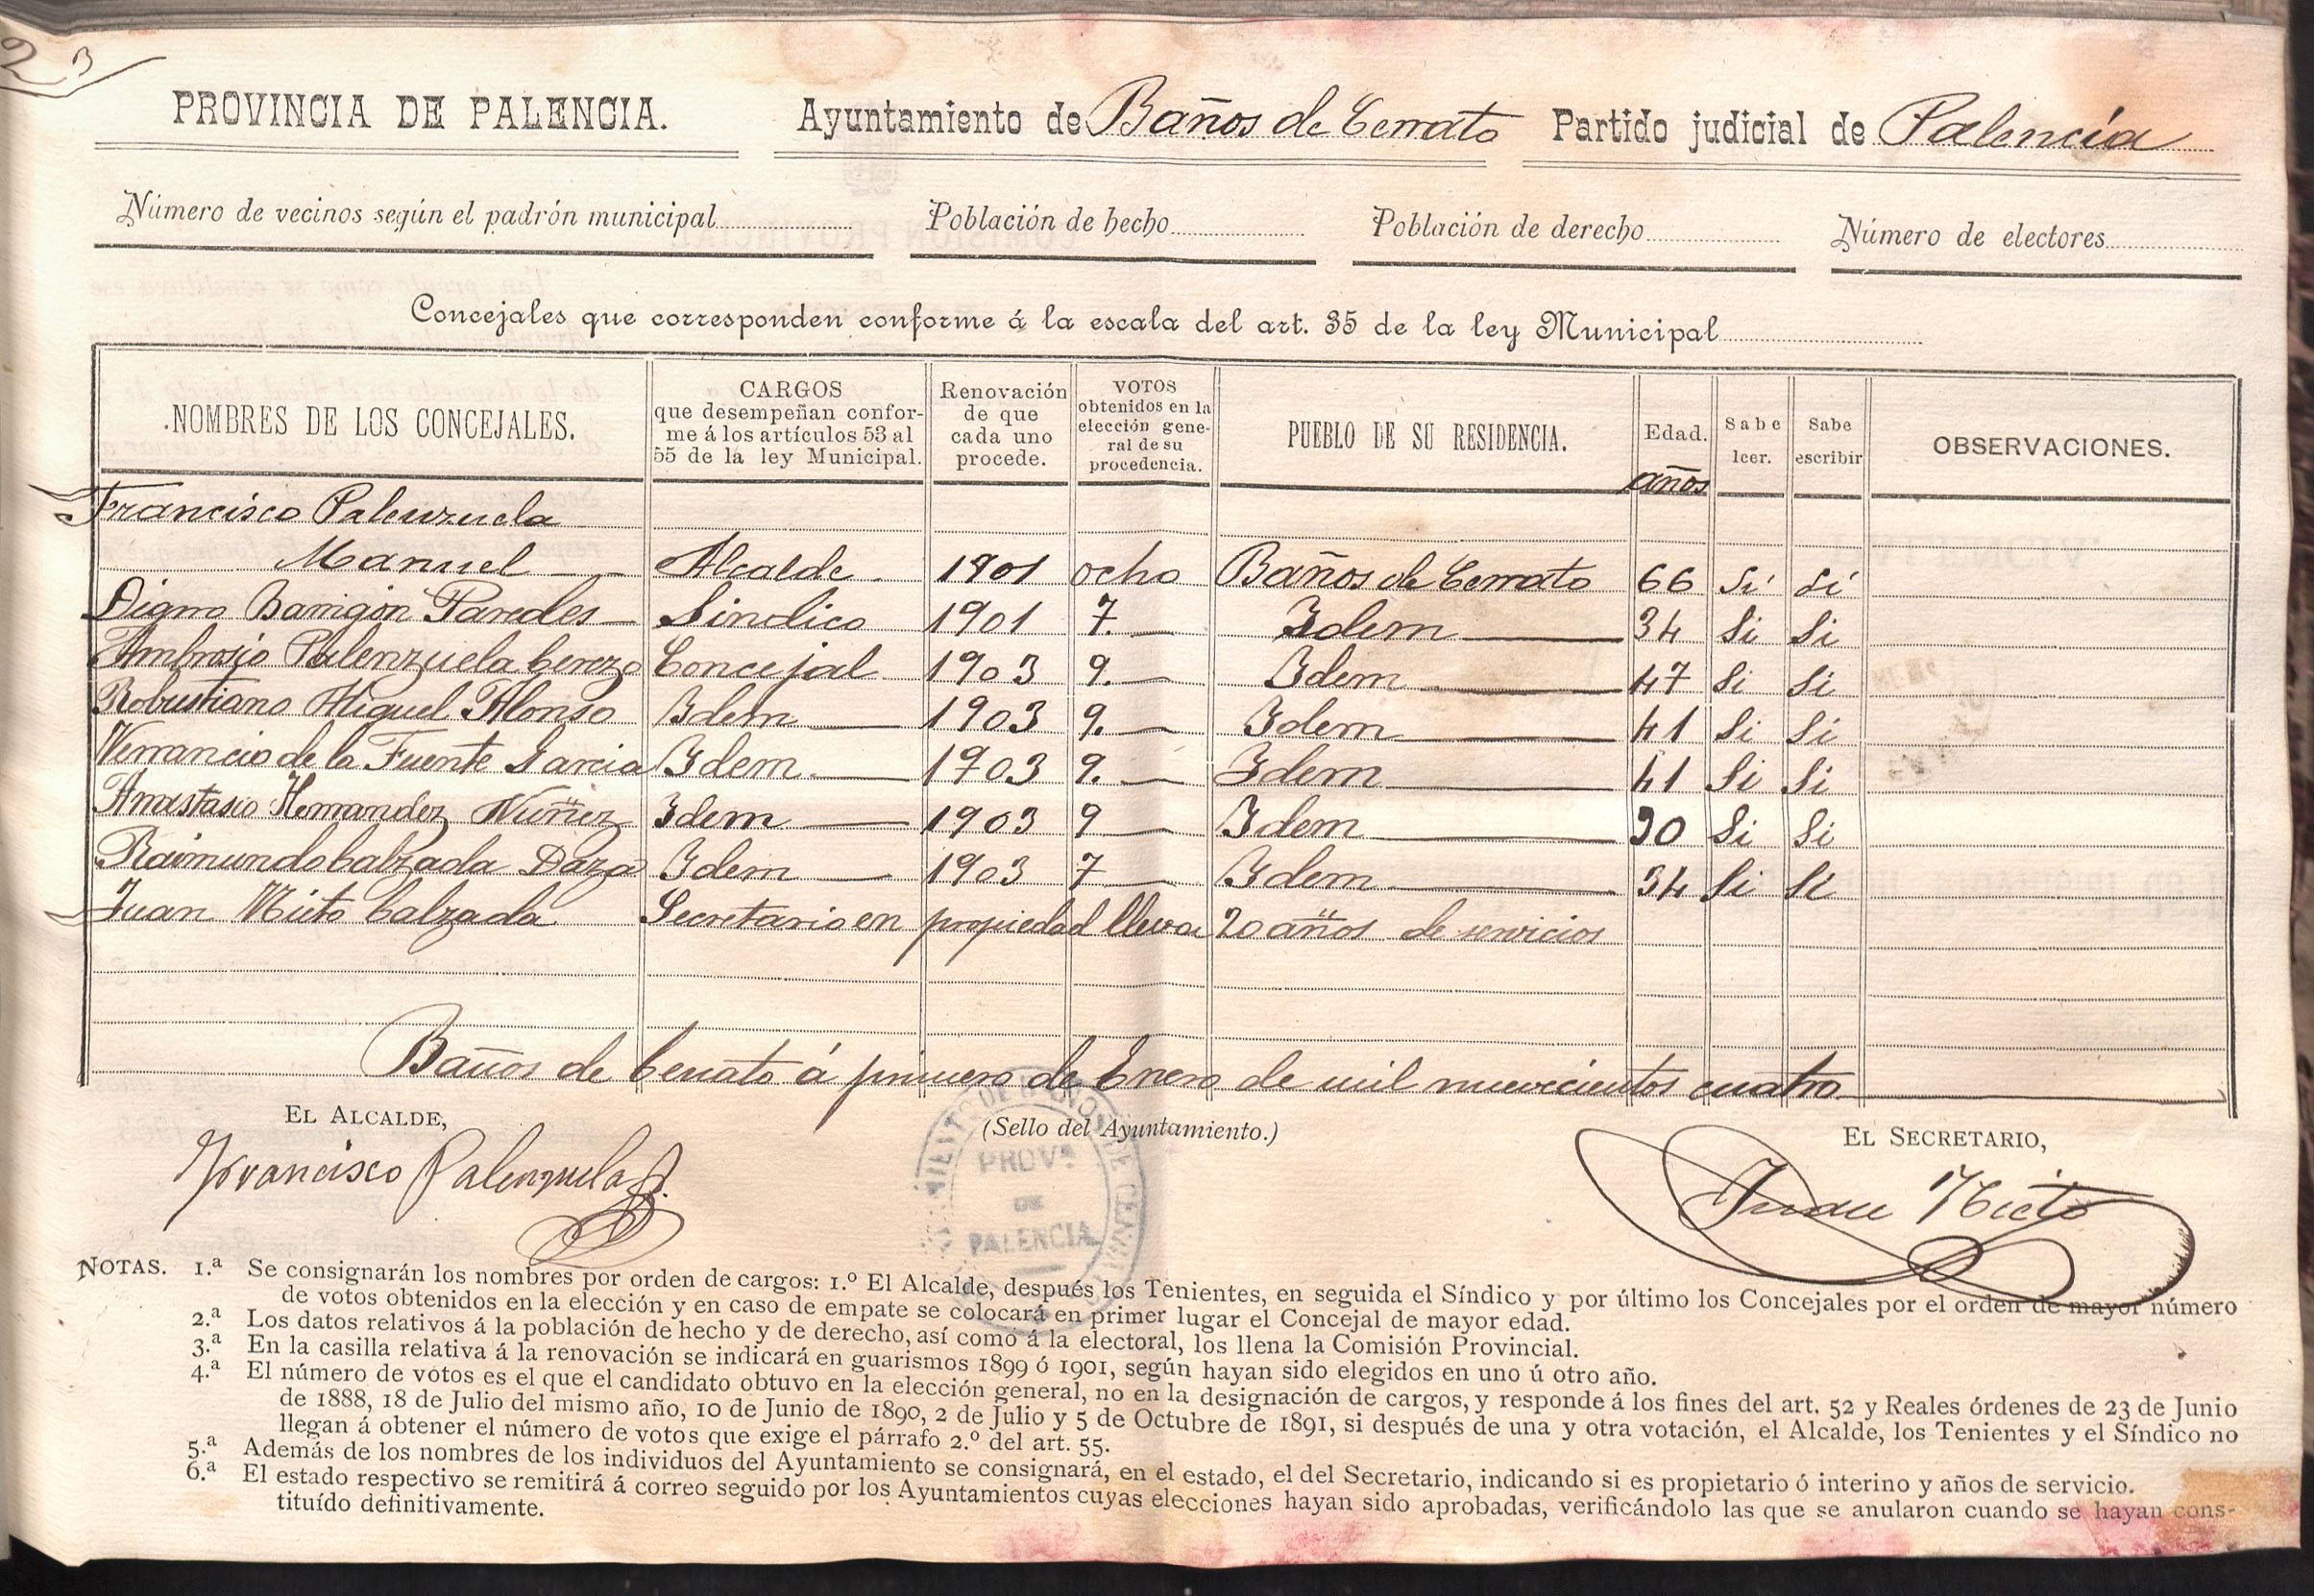 23
PROVINCIA DE PALENCIA. Ayuntamiento de Baños de Cerrato Partido judicial de Palencia
Número de vecinos según el padrón municipal Población de hecho Población de derecho Número de electores
Concejales que corresponden conforme á la escala del art. 35 de la ley Municipal
NOMBRES DE LOS CONCEJALES.
CARGOS
que desempeñan confor-
me á los artículos 53 al
55 de la ley Municipal.
Renovación
de que
cada uno
procede.
VOTOS
obtenidos en la
elección gene-
ral de su
procedencia.
PUEBLO DE SU RESIDENCIA.
Edad.
años
Sabe
leer.
Sabe
escribir
OBSERVACIONES.
Francisco Palenzuela
Manuel Alcalde 1901 ocho Baños de Cerrato 66 Sí Sí
Digno Barrigon Paredes Sindico 1901 7. Idem 34 Si Si
Ambrosio Palenzuela Cerezo Concejal 1903 9. Idem 47 Si Si
Robustiano Miguel Alonso Idem 1903 9. Idem 41 Si Si
Venancio de la Fuente Garcia Idem 1903 9. Idem 41 Si Si
Anastasio Hernandez Nuñez Idem 1903 9 Idem 30 Si Si
Raimundo Calzada Daza Idem 1903 7 Idem 34 Si Si
Juan Nieto Calzada Secretario en propiedad lleva 20 años de servicios
Baños de Cerrato á primero de Enero de mil nuevecientos cuatro
EL ALCALDE,
(Sello del Ayuntamiento.)
EL SECRETARIO,
Francisco Palenzuela
PROVª
DE
PALENCIA
Juan Nieto
NOTAS. 1.ª Se consignarán los nombres por orden de cargos: 1.º El Alcalde, después los Tenientes, en seguida el Síndico y por último los Concejales por el orden de mayor número
de votos obtenidos en la elección y en caso de empate se colocará en primer lugar el Concejal de mayor edad.
2.ª Los datos relativos á la población de hecho y de derecho, así como á la electoral, los llena la Comisión Provincial.
3.ª En la casilla relativa á la renovación se indicará en guarismos 1899 ó 1901, según hayan sido elegidos en uno ú otro año.
4.ª El número de votos es el que el candidato obtuvo en la elección general, no en la designación de cargos, y responde á los fines del art. 52 y Reales órdenes de 23 de Junio
de 1888, 18 de Julio del mismo año, 10 de Junio de 1890, 2 de Julio y 5 de Octubre de 1891, si después de una y otra votación, el Alcalde, los Tenientes y el Síndico no
llegan á obtener el número de votos que exige el párrafo 2.º del art. 55.
5.ª Además de los nombres de los individuos del Ayuntamiento se consignará, en el estado, el del Secretario, indicando si es propietario ó interino y años de servicio.
6.ª El estado respectivo se remitirá á correo seguido por los Ayuntamientos cuyas elecciones hayan sido aprobadas, verificándolo las que se anularon cuando se hayan cons-
tituído definitivamente.